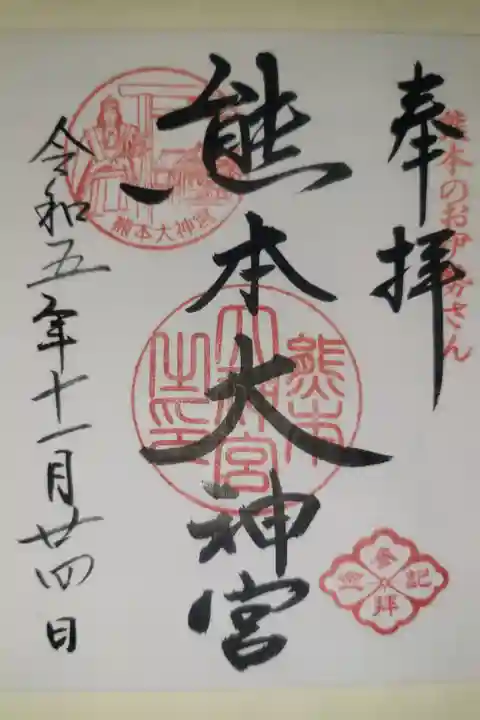 奉拝
熊本のお伊勢さん
熊本大神宮
熊本大神宮
熊本大神宮之印
参拝記
令和五年十一月廿四日